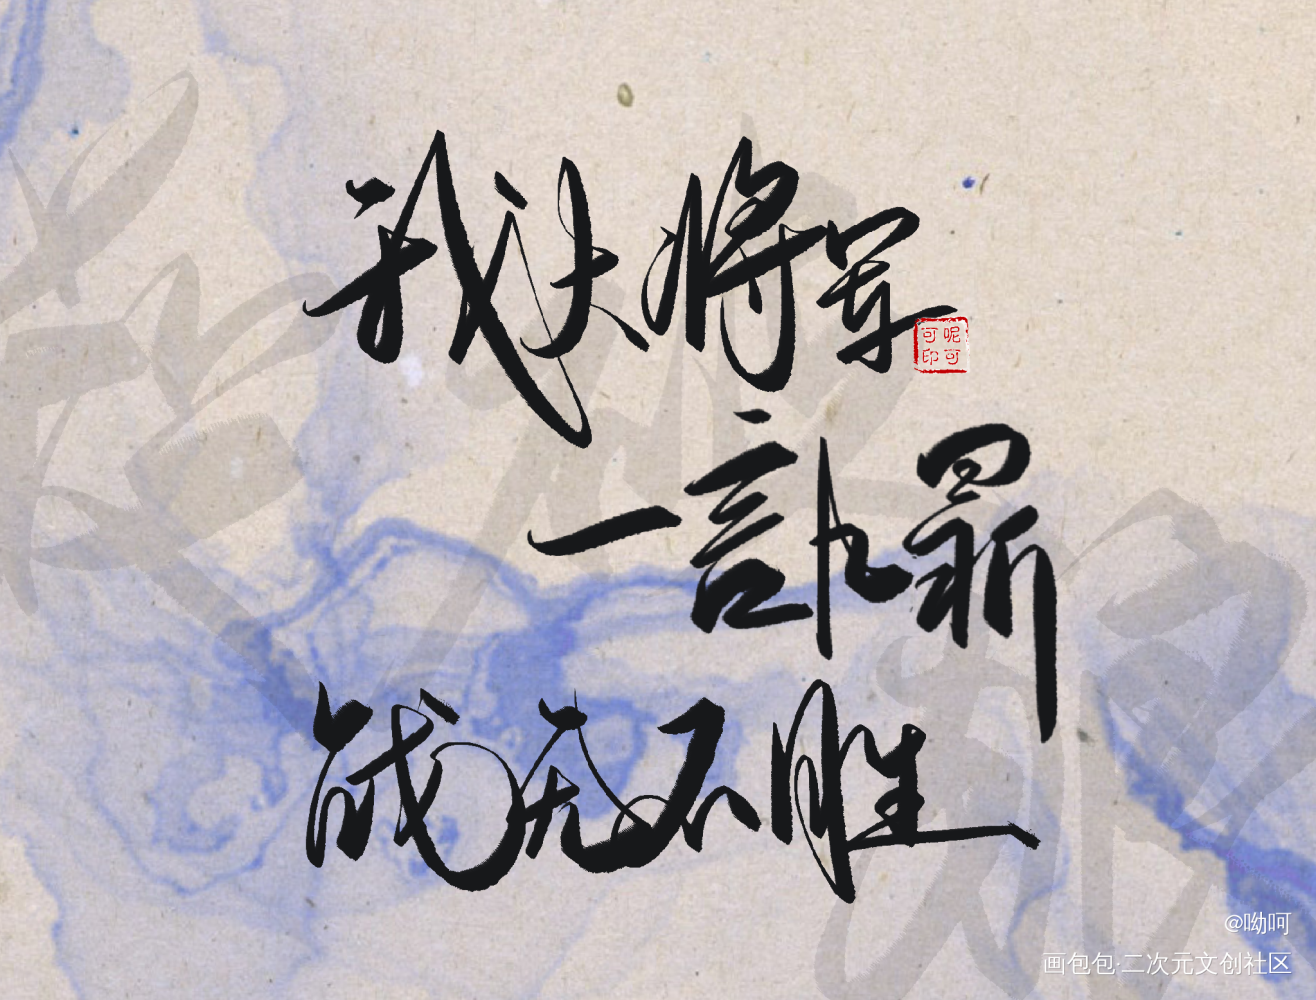 我大将军
呢可可印
一言九鼎
战无不胜
@呦呵
画包包·二次元文创社区